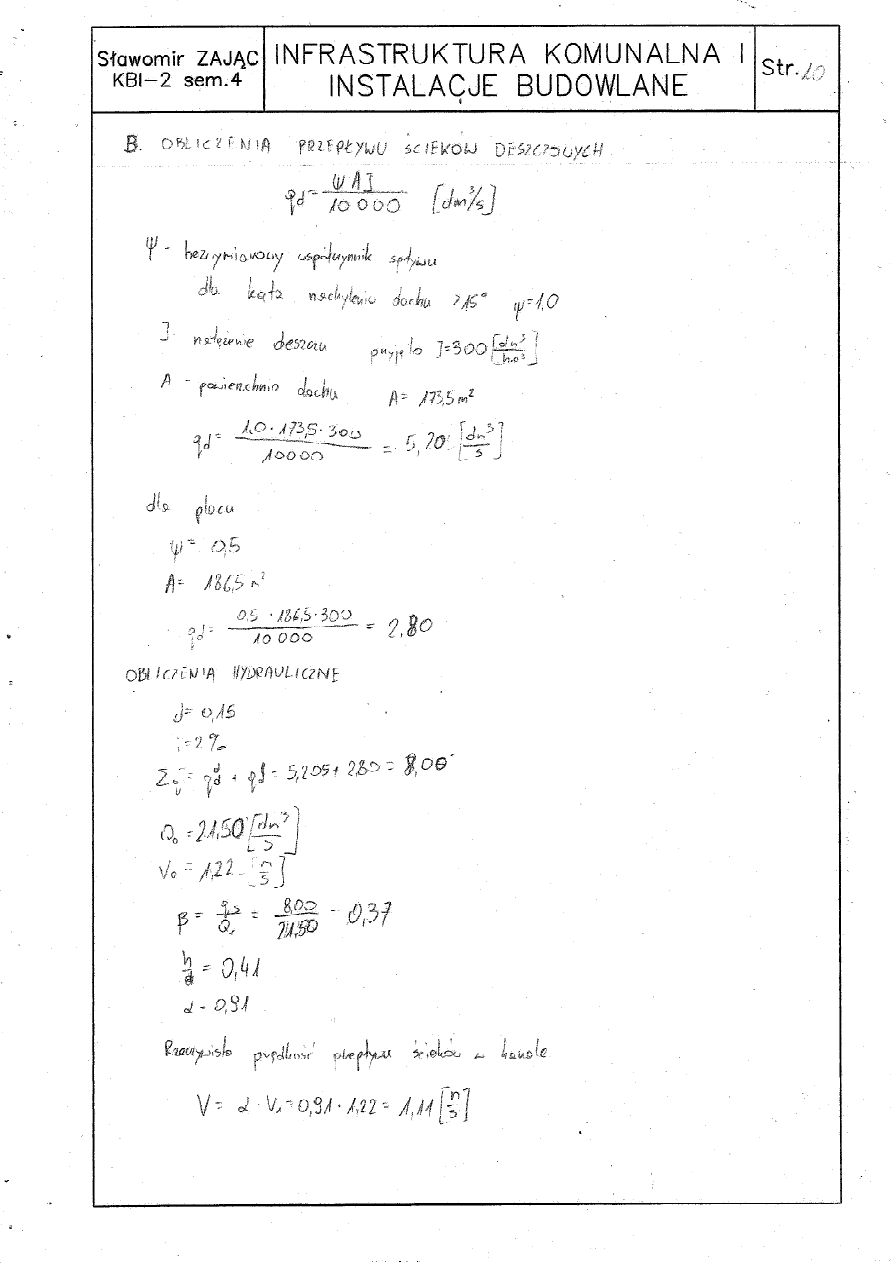 Sławomir ZAJĄC
KBI-2 sem.4
INFRASTRUKTURA KOMUNALNA I
INSTALACJE BUDOWLANE
Str. 10
B. OBLICZENIA PRZEPŁYWU ŚCIEKÓW DESZCZOWYCH
qd = ΨAI / 10000 [dm³/s]
Ψ - bezwymiarowy współczynnik spływu
dla kąta nachylenia dachu >15° ψ=1,0
I natężenie deszczu przyjęto I=300 [dm³/h·a³]
A - powierzchnia dachu A= 173,5 m²
qd = 1,0 · 173,5 · 300 / 10000 = 5,20 [dm³/s]
dla placu
ψ = 0,5
A= 186,5 m²
qd = 0,5 · 186,5 · 300 / 10 000 = 2,80
OBLICZENIA HYDRAULICZNE
d= 0,15
i=2%
= qd + qd = 5,205 + 2,80 = 8,00
Q₀ = 21,50 [dm³/s]
V₀ = 1,22 [m/s]
β = / = 8,00 / 21,50 = 0,37
h/d = 0,41
α - 0,91
Rzeczywista prędkość przepływu ścieków w kanale
V = α · V₀ = 0,91 · 1,22 = 1,11 [m/s]